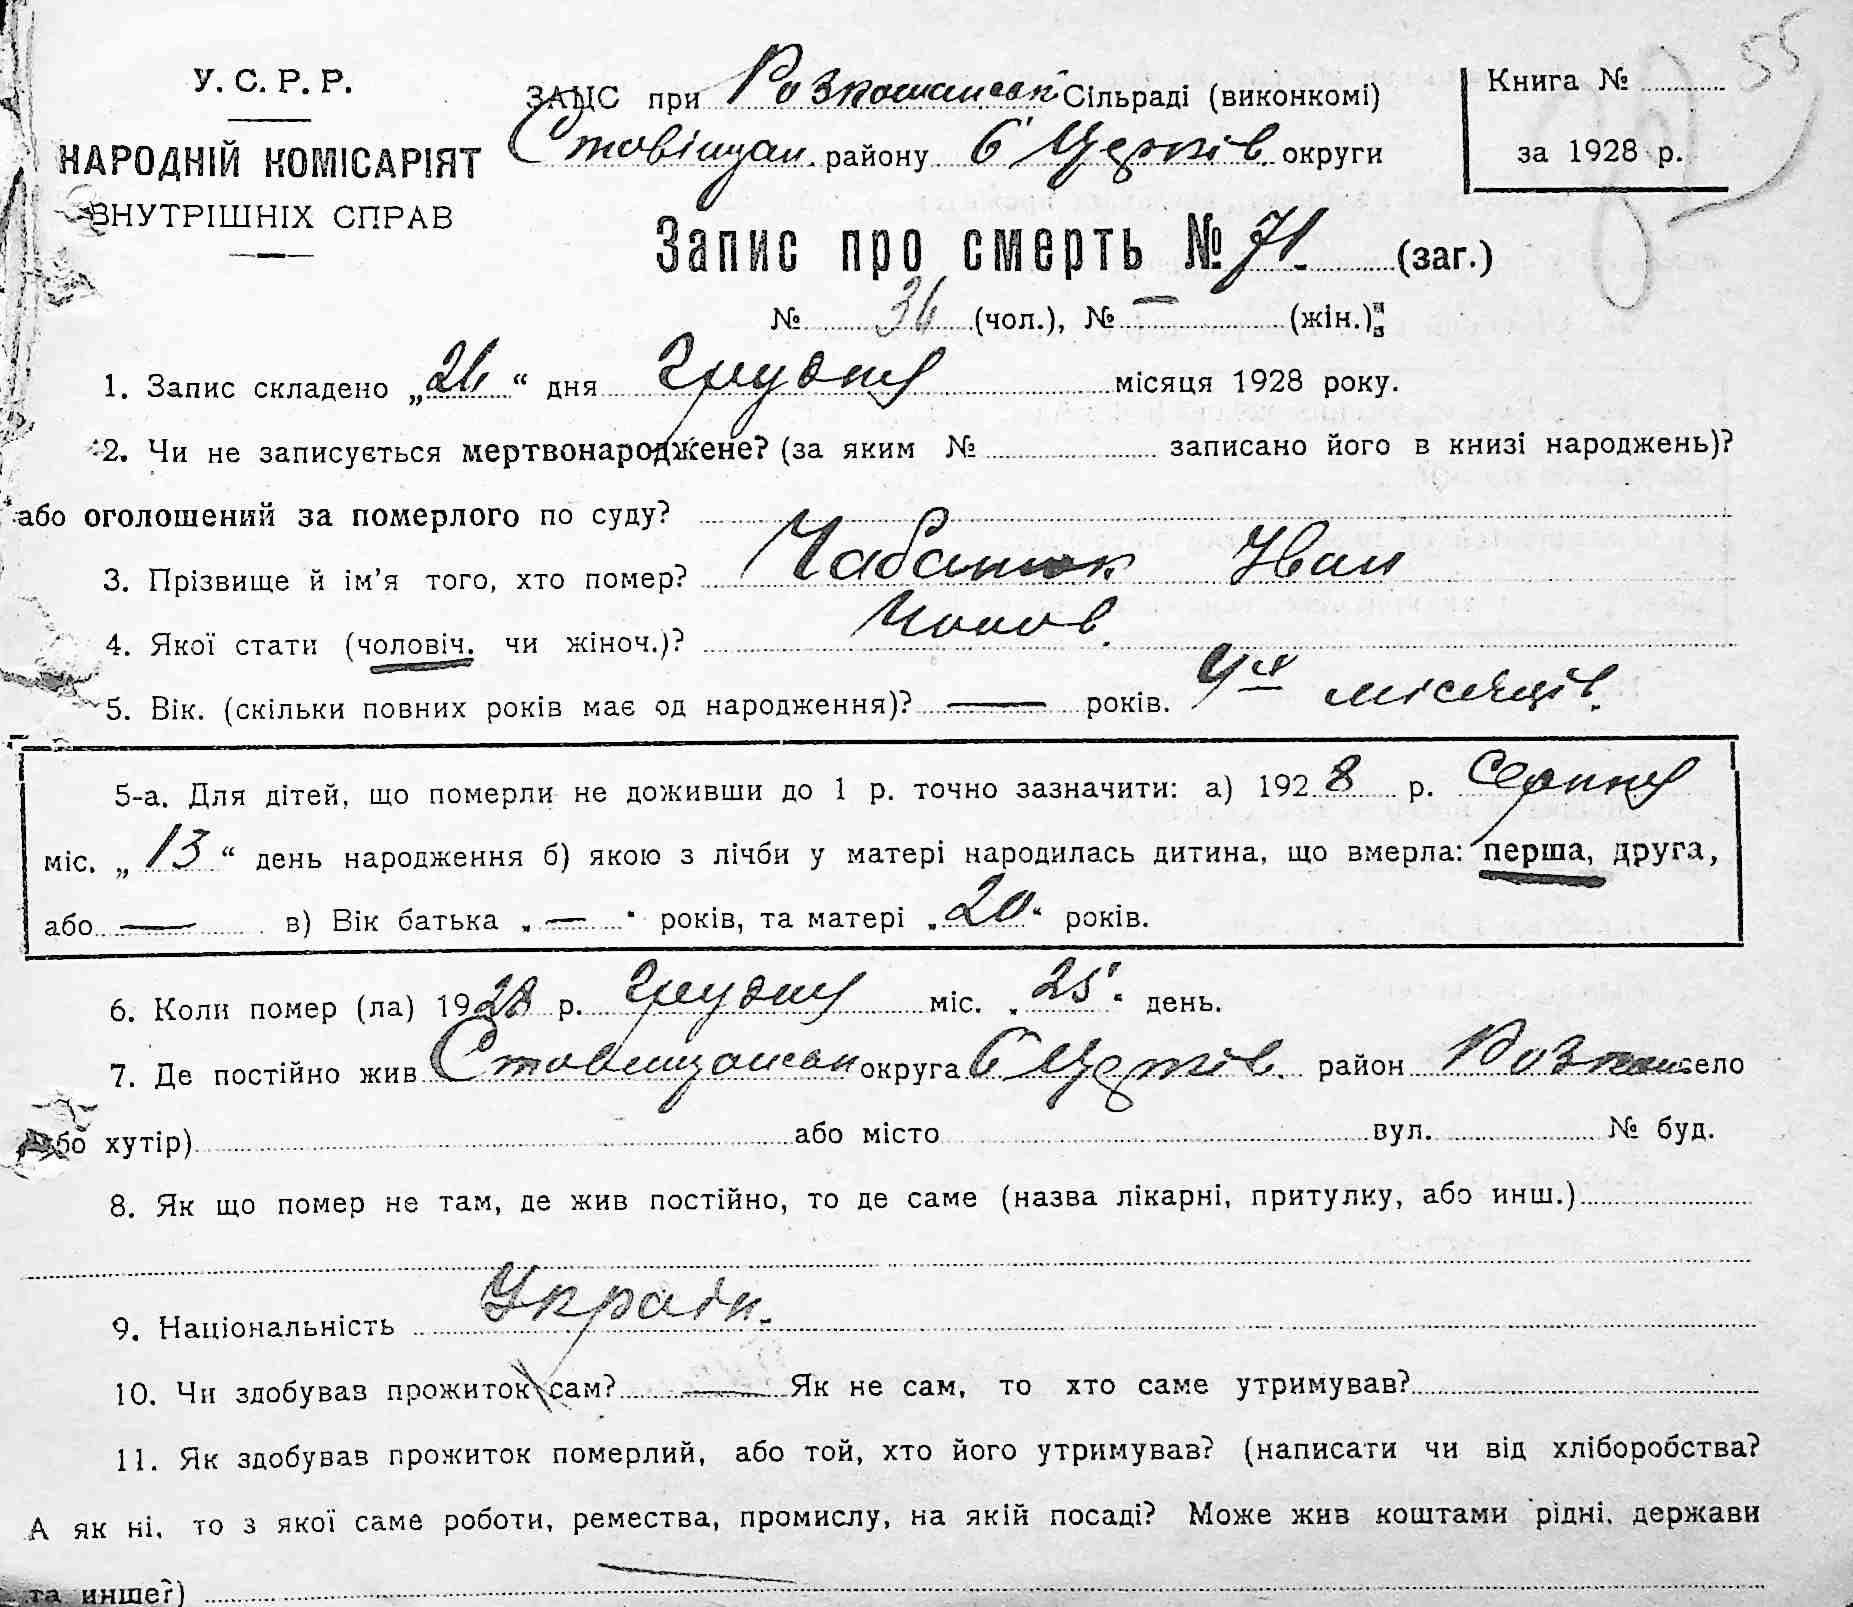 55
У. С. Р. Р.
НАРОДНІЙ КОМІСАРІЯТ
ВНУТРІШНІХ СПРАВ
ЗАЦС при Розкошанськ Сільраді (виконкомі)
Ставищан. району Б Церків. округи
Книга №
за 1928 р.
Запис про смерть № 71. (заг.)
№ 36 (чол.), № — (жін.)
1. Запис складено „26“ дня Грудня місяця 1928 року.
2. Чи не записується мертвонароджене? (за яким № записано його в книзі народжень)?
або оголошений за померлого по суду?
3. Прізвище й ім’я того, хто помер? Чабанюк Иван
4. Якої стати (чоловіч. чи жіноч.)? Чолов.
5. Вік. (скільки повних років має од народження)? — років. 4х місяців.
5-а. Для дітей, що померли не доживши до 1 р. точно зазначити: а) 1928 р. Серпня
міс. „13“ день народження б) якою з лічби у матері народилась дитина, що вмерла: перша, друга,
або — в) Вік батька „—“ років, та матері „20“ років.
6. Коли помер (ла) 1928 р. Грудня міс. „25“ день.
7. Де постійно жив Ставищанськ округа Б Церків. район Розкош село
або хутір) або місто вул. № буд.
8. Як що помер не там, де жив постійно, то де саме (назва лікарні, притулку, або инш.)
9. Національність Україн.
10. Чи здобував прожиток сам? — Як не сам, то хто саме утримував?
11. Як здобував прожиток померлий, або той, хто його утримував? (написати чи від хліборобства?
А як ні, то з якої саме роботи, ремества, промислу, на якій посаді? Може жив коштами рідні, держави
та инше?) —